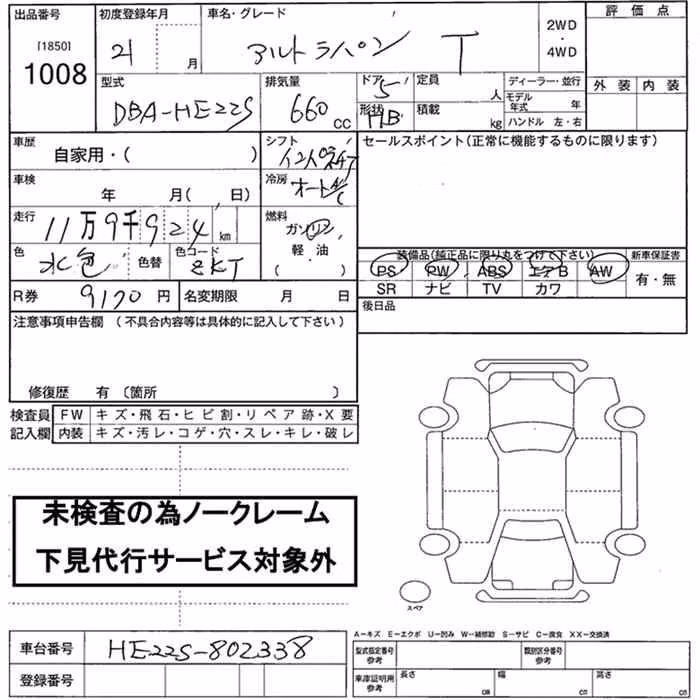 出品番号 初度登録年月 車名・グレード 評価点
[1850] 21 月 アルトラパン T 2WD・4WD
1008
外装 内装
型式 排気量 ドア 5 定員 人 ディーラー・並行
DBA-HE22S 660 CC 形状 HB 積載 kg モデル年式 年
ハンドル 左・右
車歴 シフト セールスポイント(正常に機能するものに限ります)
自家用・( )
車検 冷房 オートA/C
年 月( 日)
走行 11万9千924 km 燃料 ガソリン・
軽・油
( )
色 水色 色替 色コード
装備品(純正品に限り丸をつけて下さい) 新車保証書
PS PW ABS エアB AW 有・無
SR ナビ TV カワ
R券 9170 円 名変期限 月 日 後日品
注意事項申告欄 (不具合内容等は具体的に記入して下さい)
修復歴 有 〔箇所 〕
検査員 FW キズ・飛石・ヒビ割・リペア跡・X要
記入欄 内装 キズ・汚レ・コゲ・穴・スレ・キレ・破レ
未検査の為ノークレーム
下見代行サービス対象外
スペア
A-キズ E-エクボ U-凹み W-補修跡 S-サビ C-腐食 XX-交換済
車台番号 HE22S-802338 型式指定番号 参考 類別区分番号 参考
登録番号 車庫証明用 参考 長さ cm 幅 cm 高さ cm